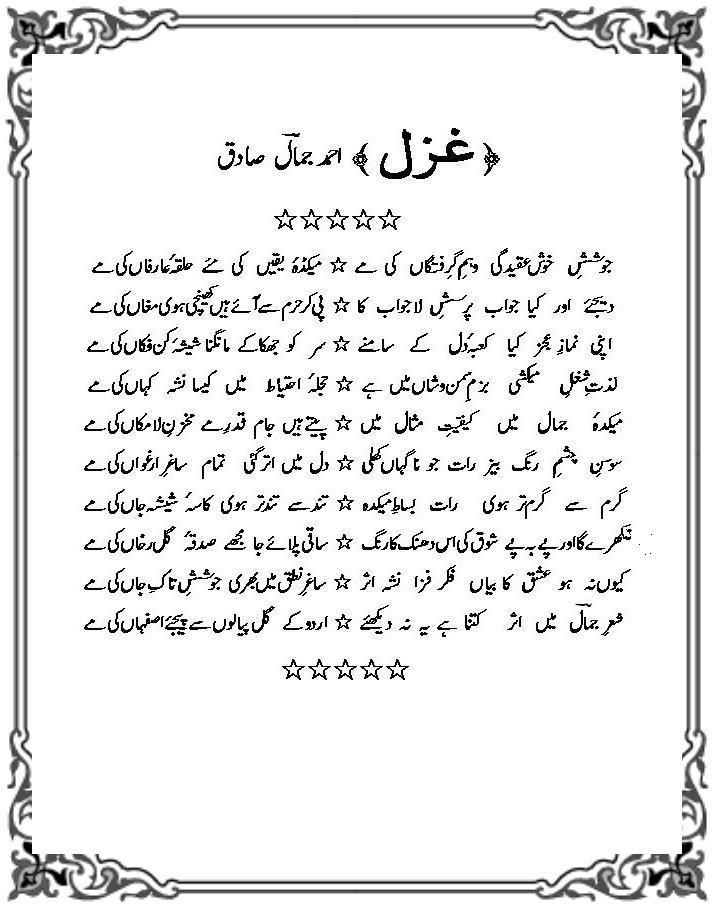 ﴿ غزل ﴾ احمد جمالؔ صادق
☆☆☆☆☆
جوششِ خوش عقیدگی وہمِ گرفتگاں کی مے ☆ میکدۂ یقیں کی مئے حلقۂ عارفاں کی مے
دیجئے اور کیا جواب پرسشِ لاجواب کا ☆ پی کر حرم سے آئے ہیں کھینچی ہوی مغاں کی مے
اپنی نمازِ عجز کیا کعبۂ دل کے سامنے ☆ سر کو جھکا کے مانگنا شیشۂ کن فکاں کی مے
لذتِ شغلِ میکشی بزمِ سمن وشاں میں ہے ☆ حجلۂ احتیاط میں کیسا نشہ کہاں کی مے
میکدۂ جمال میں کیفیتِ مثال میں ☆ پیتے ہیں جام قدرِ مے مخزنِ لامکاں کی مے
سوسنِ چشمِ رنگ بیز رات جو ناگہاں کھلی ☆ دل میں اتر گئی تمام ساغرِ ارغواں کی مے
گرم سے گرم تر ہوی رات بساطِ میکدہ ☆ تند سے تند تر ہوی کاسۂ شیشہ جاں کی مے
نکھرے گا اور پے بہ پے شوق کی اس دھنک کا رنگ ☆ ساقی پلائے جا مجھے صدقۂ گل رخاں کی مے
کیوں نہ ہو عشق کا بیاں فکر فزا نشہ اثر ☆ ساغرِ نطق میں بھری جوششِ تاکِ جاں کی مے
شعرِ جمالؔ میں اثر کتنا ہے یہ نہ دیکھئے ☆ اردو کے گل پیالوں سے پیجئے اصفہاں کی مے
☆☆☆☆☆